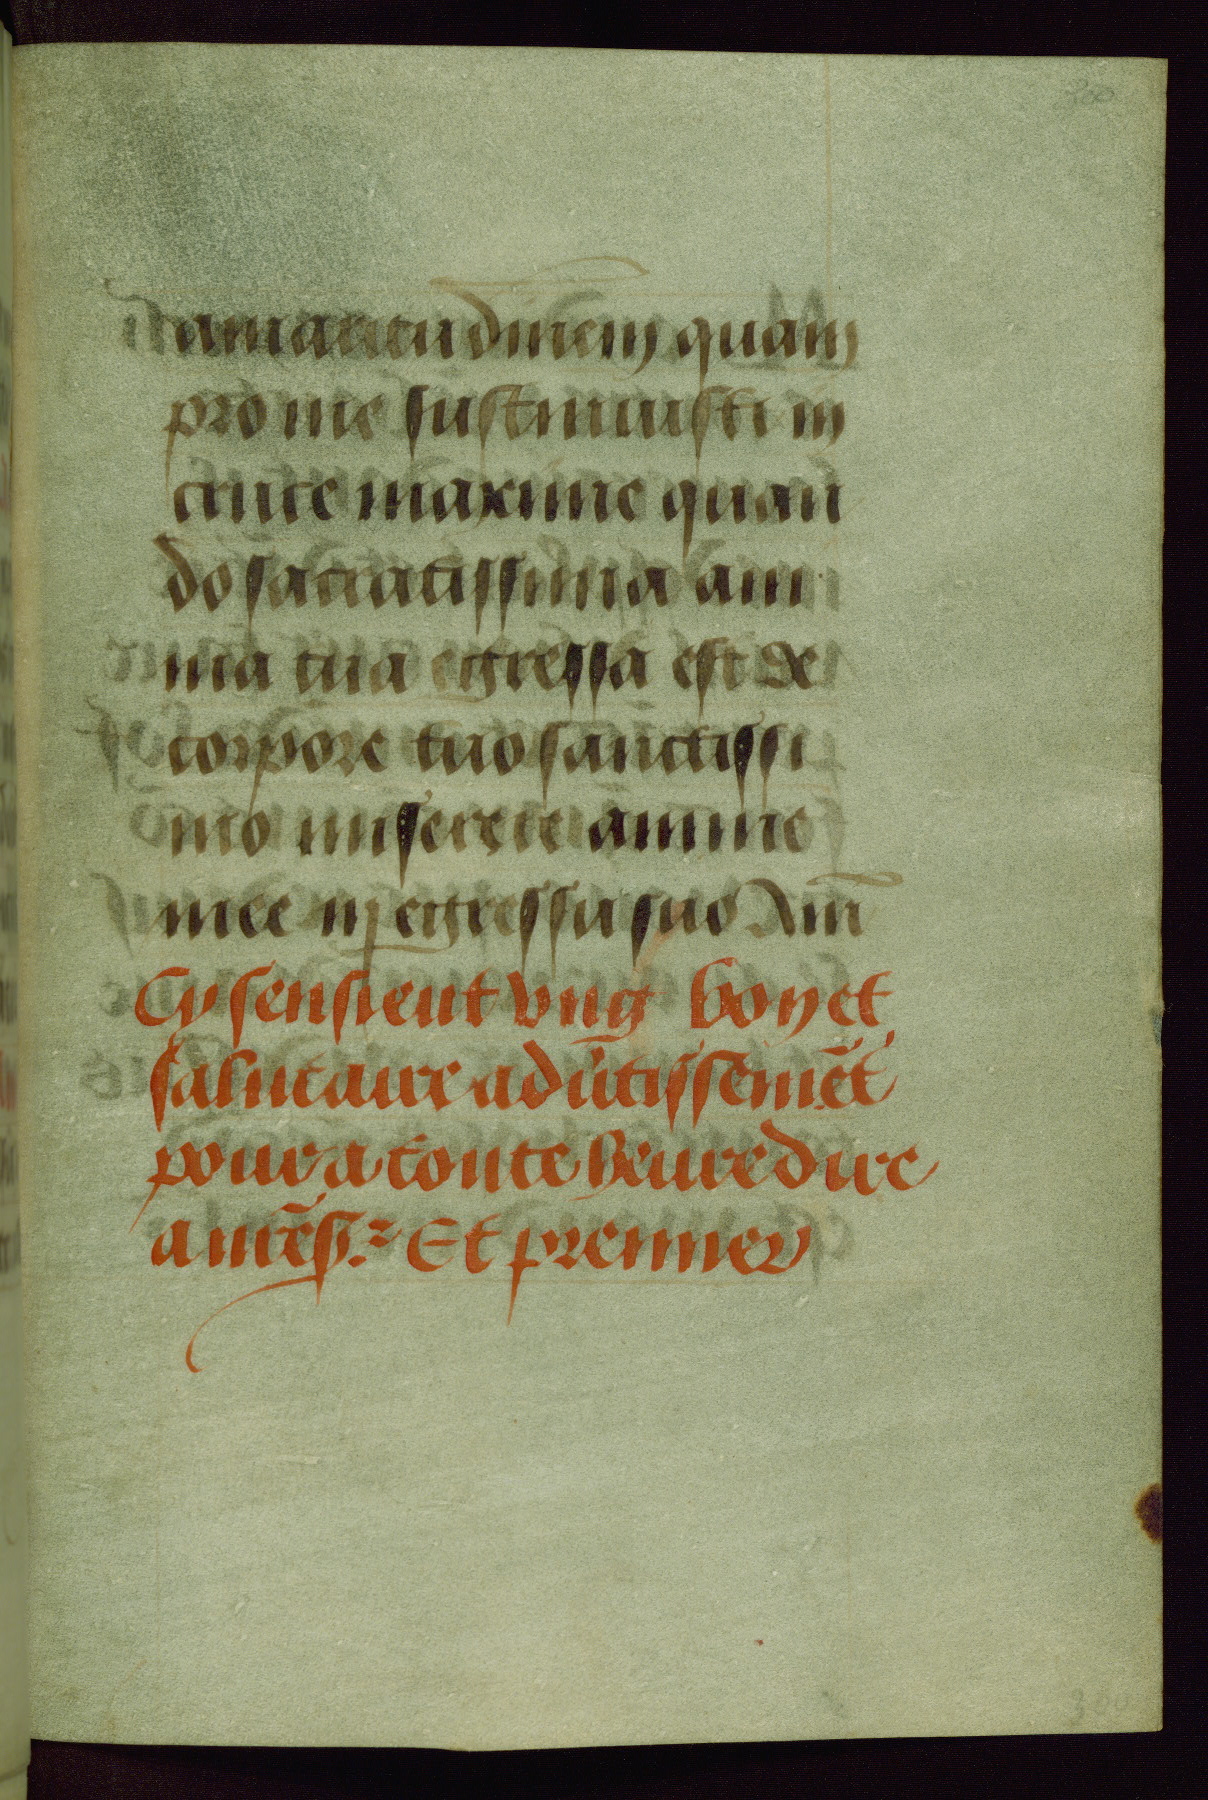 200
amaritudinem quam
pro me sustinuisti in
cruce maxime quan
do sacratissima ani
ma tua egressa est de
corpore tuo sanctissi
mo miserere anime
mee in egressu suo Am̄
Cy sensieut vng bon et
salutaire aduˉtissemēt
pour a toute heure dire
a nr̄e sr̄. Et premier
300